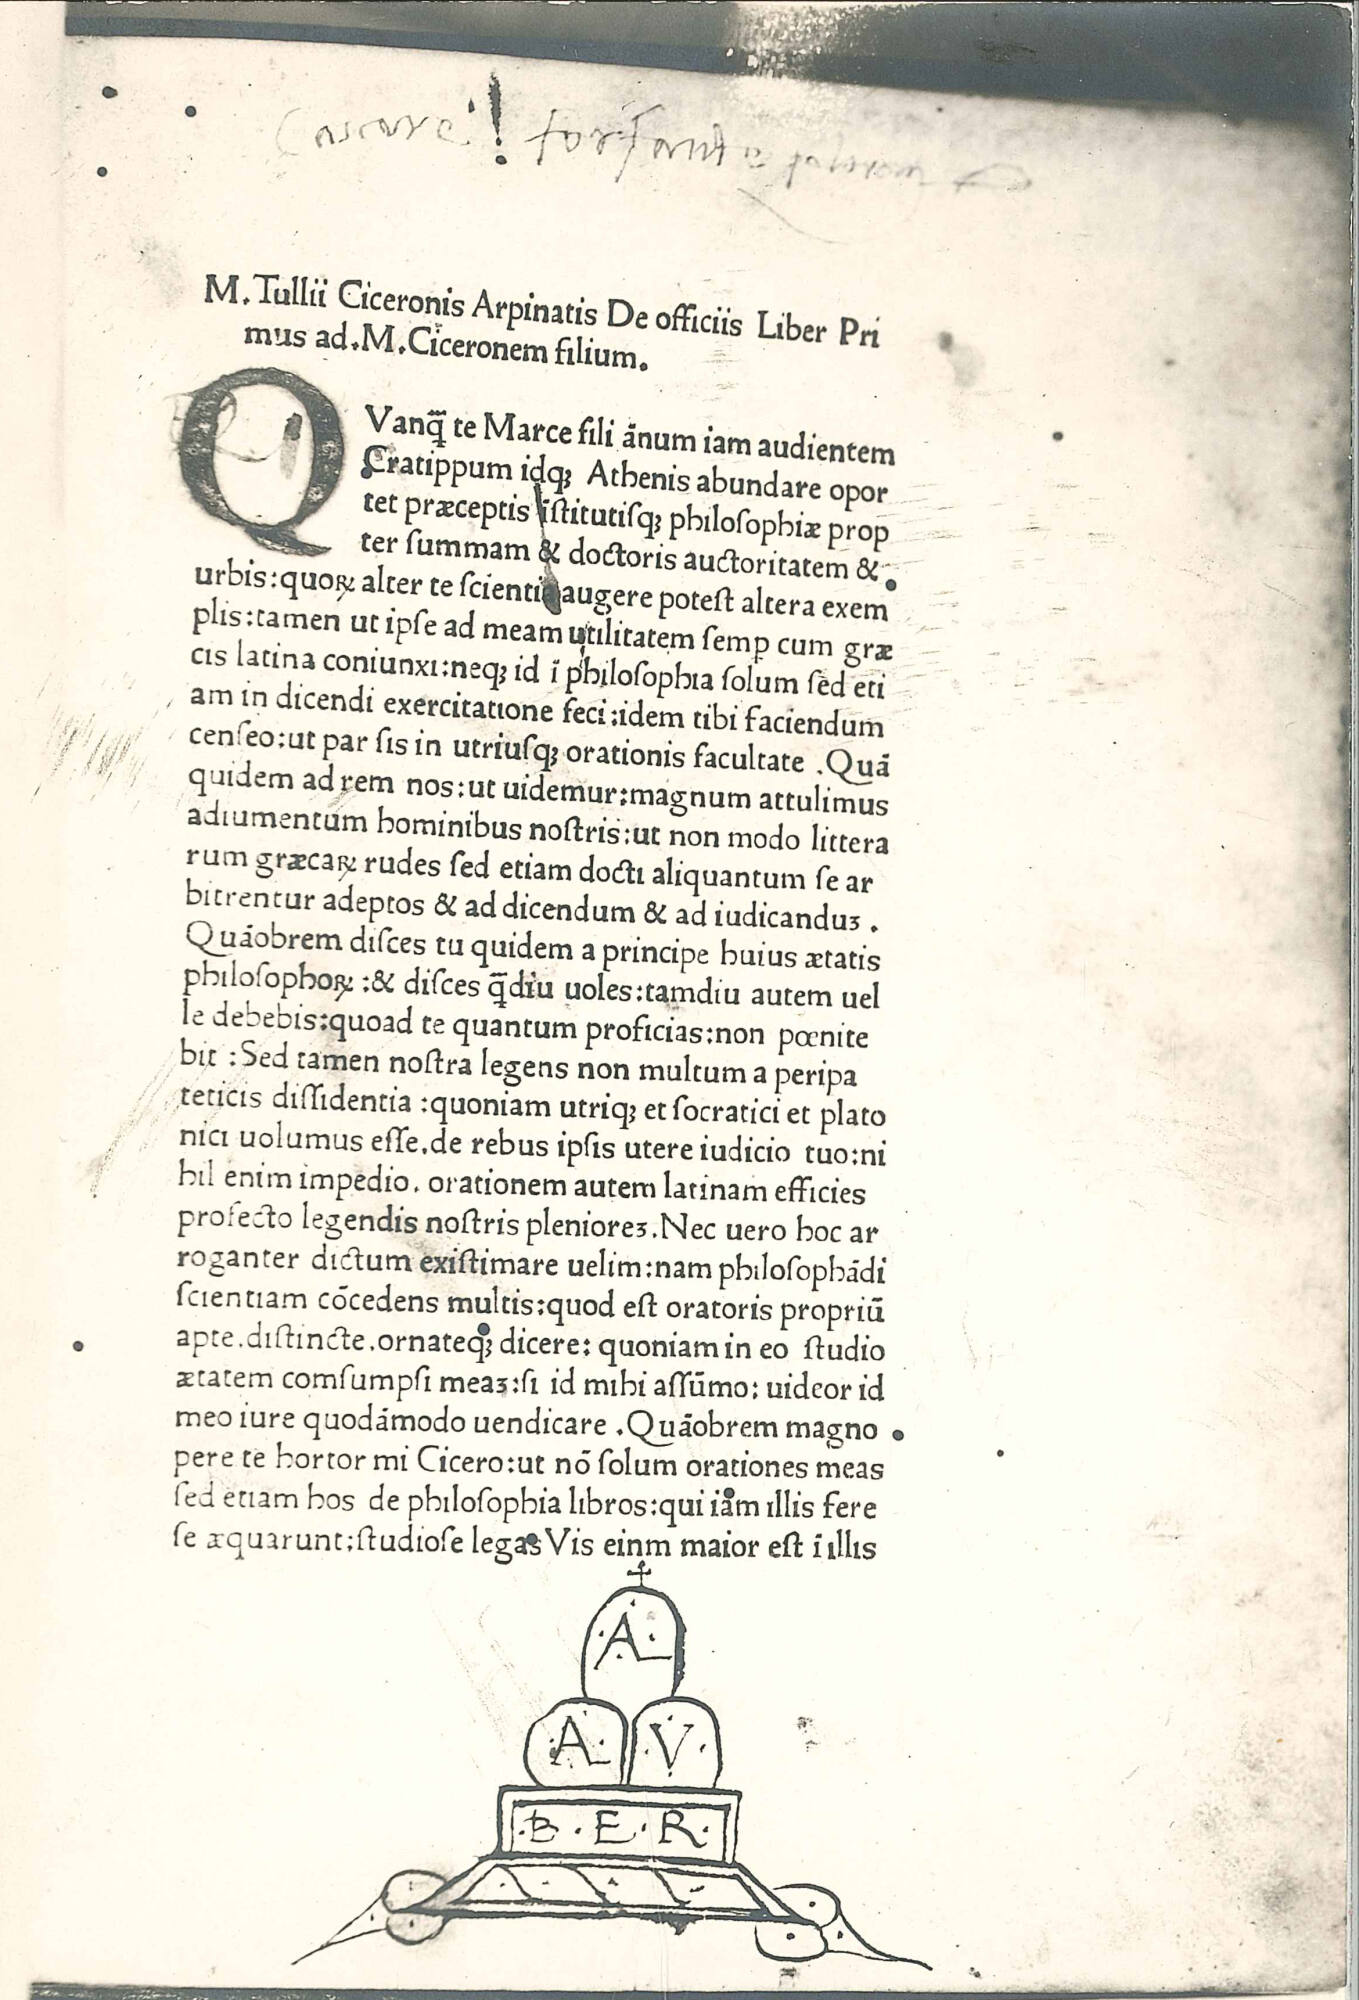 M. Tullii Ciceronis Arpinatis De officiis Liber Pri
mus ad. M. Ciceronem filium.
Q
Vanq̃ te Marce fili ānum iam audientem
Cratippum idq; Athenis abundare opor
tet præceptis īſtitutiſq; philoſophiæ prop
ter ſummam & doctoris auctoritatem &
urbis:quoꝝ alter te ſcientia augere poteſt altera exem
plis:tamen ut ipſe ad meam utilitatem ſemꝑ cum græ
cis latina coniunxi:neq; id ī philoſophia ſolum ſed eti
am in dicendi exercitatione feci:idem tibi faciendum
cenſeo:ut par ſis in utriuſq; orationis facultate .Quā
quidem ad rem nos:ut uidemur:magnum attulimus
adiumentum hominibus noſtris:ut non modo littera
rum græcaꝝ rudes ſed etiam docti aliquantum ſe ar
bitrentur adeptos & ad dicendum & ad iudicanduꝫ .
Quāobrem diſces tu quidem a principe huius ætatis
philoſophoꝝ :& diſces q̃diu uoles:tamdiu autem uel
le debebis:quoad te quantum proficias:non pœnite
bit :Sed tamen noſtra legens non multum a peripa
teticis diſſidentia :quoniam utriq; et ſocratici et plato
nici uolumus eſſe.de rebus ipſis utere iudicio tuo:ni
hil enim impedio. orationem autem latinam efficies
profecto legendis noſtris plenioreꝫ.Nec uero hoc ar
roganter dictum exiſtimare uelim:nam philoſophādi
ſcientiam cōcedens multis:quod eſt oratoris propriū
apte.diſtincte.ornateq; dicere: quoniam in eo ſtudio
ætatem comſumpſi meaꝫ:ſi id mihi aſſūmo: uideor id
meo iure quodāmodo uendicare .Quāobrem magno
pere te hortor mi Cicero:ut nō ſolum orationes meas
ſed etiam hos de philoſophia libros:qui iam illis fere
ſe æquarunt:ſtudioſe legas Vis einm maior eſt ī illis
.A.
.A. .V.
.B.E.R.